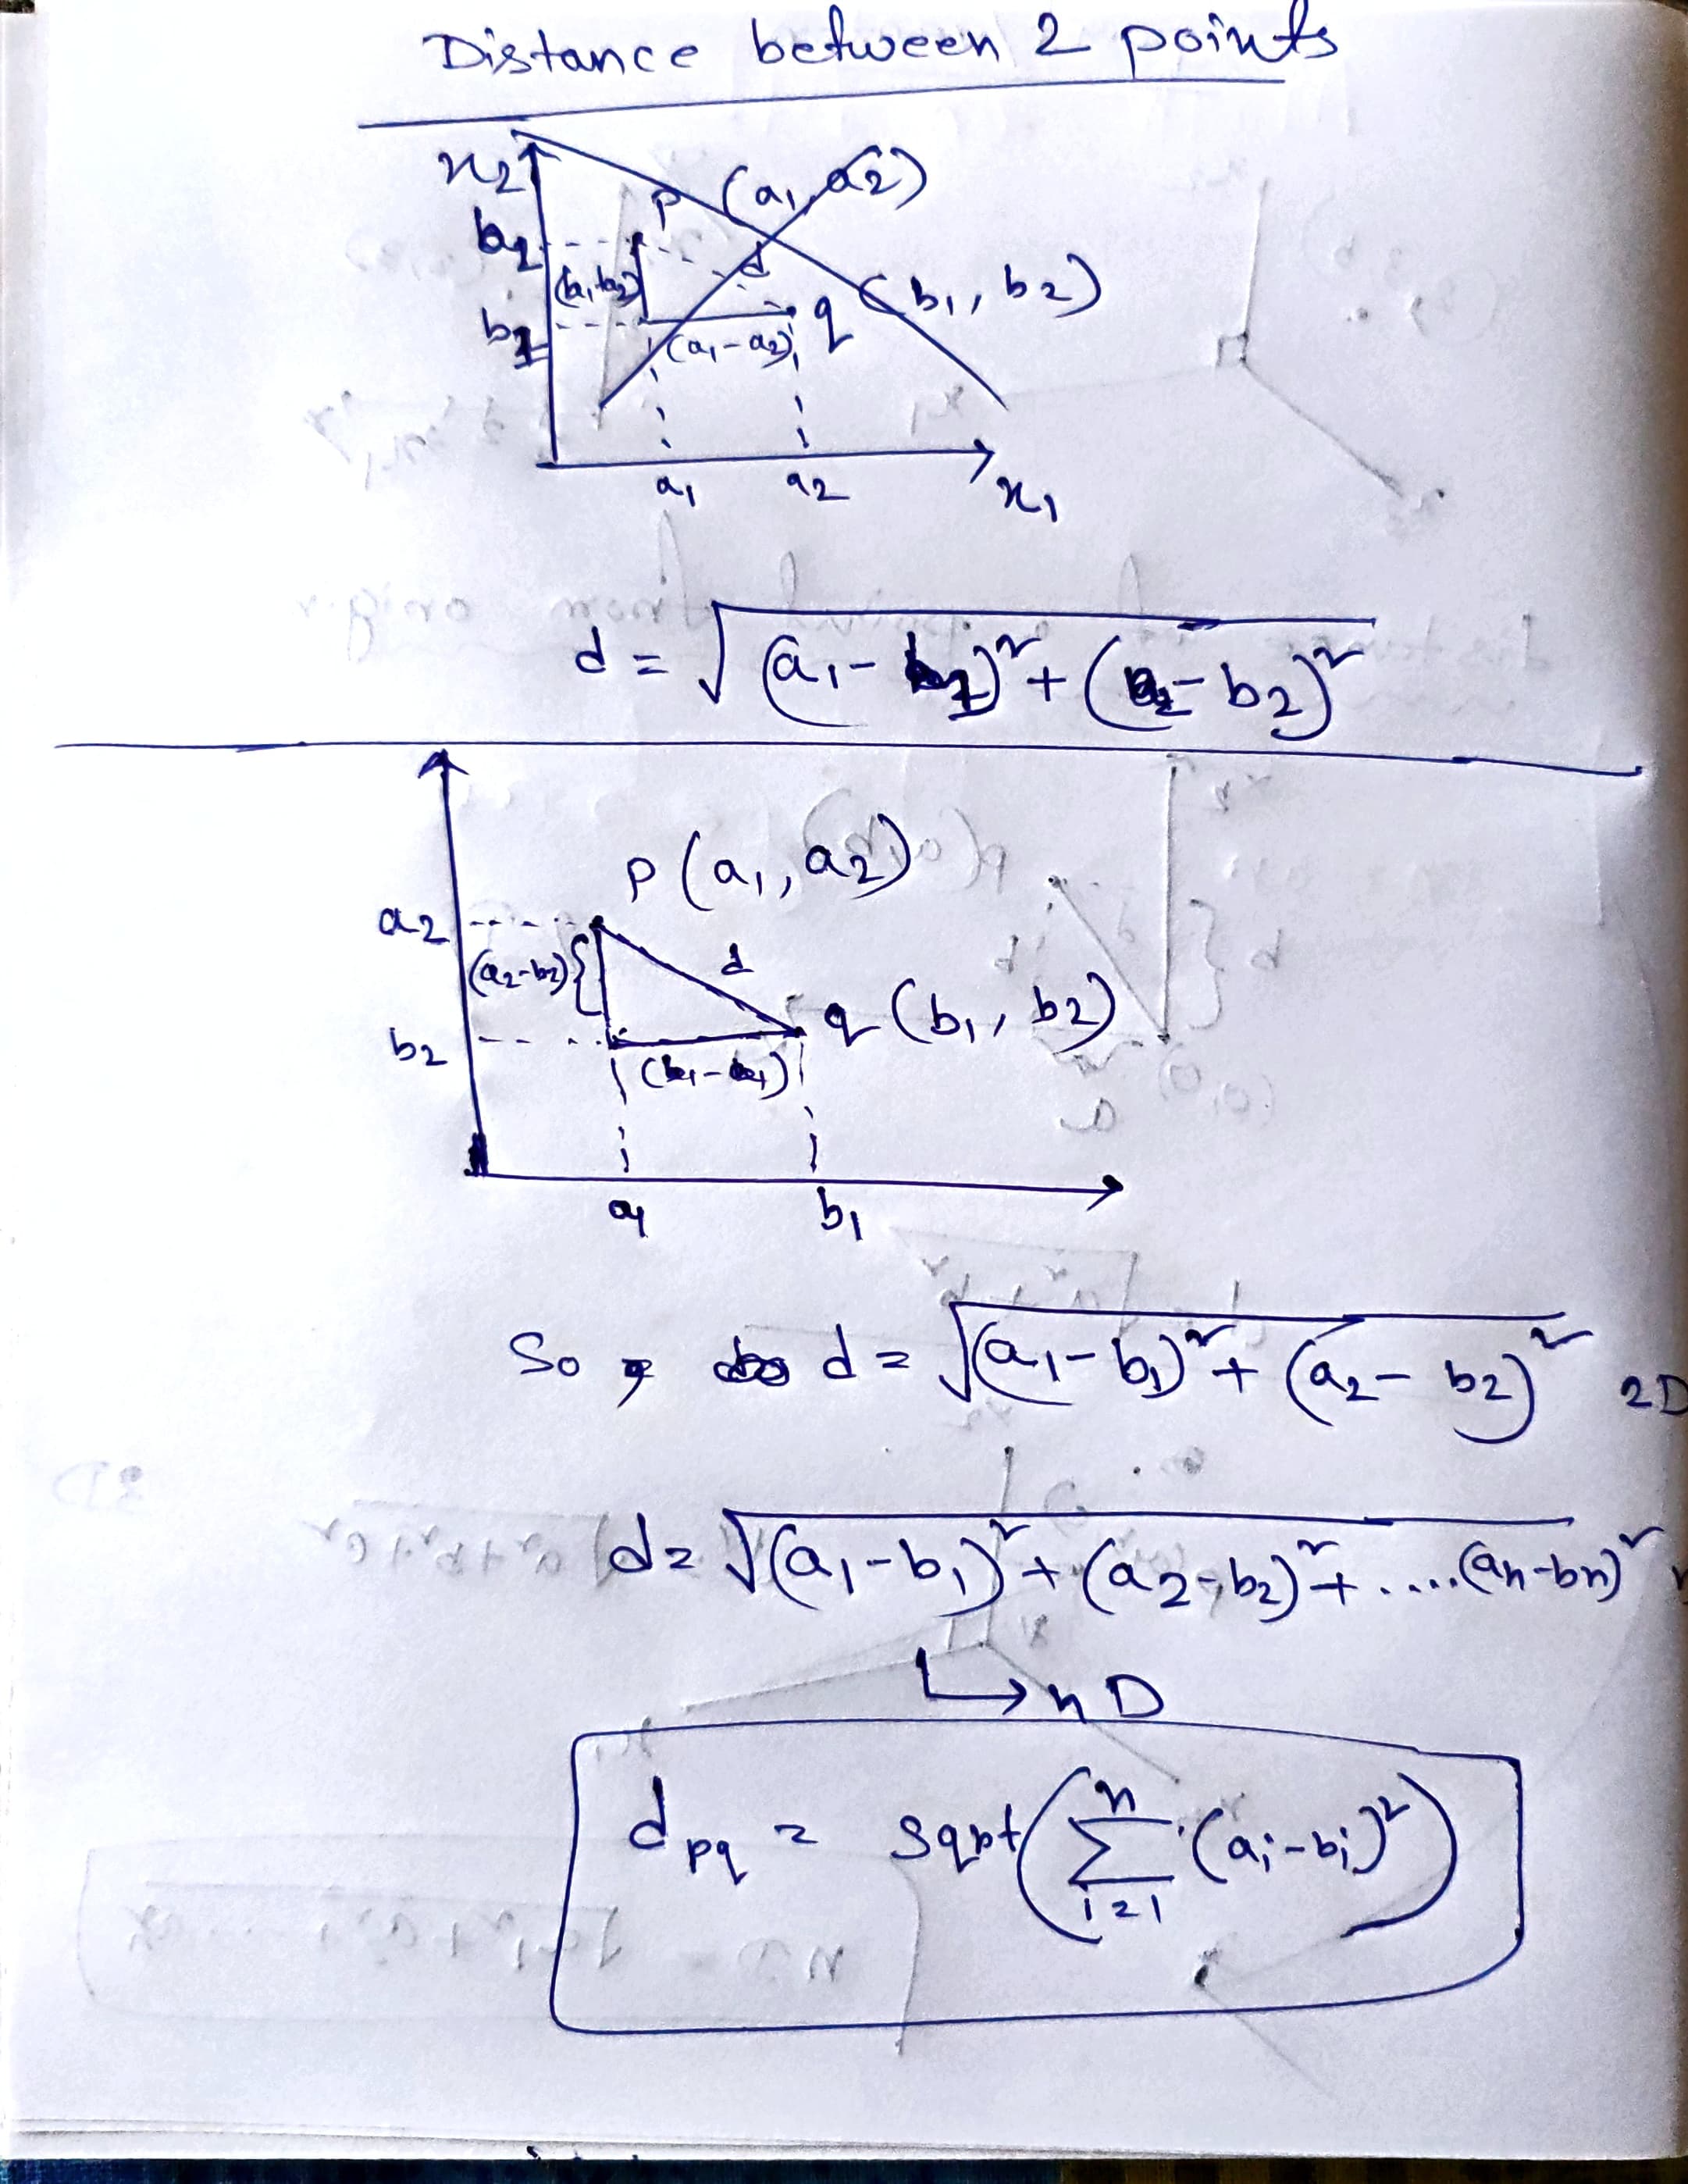 Distance between 2 points
x2
p (a1, a2)
b2
d
(b1, b2)
q
b1
(a1-a2)
a1 a2 x1
d = √(a1-b1)² + (a2-b2)²
p (a1, a2)
a2
(a2-b2)
d
q (b1, b2)
b2
(b1-a1)
a1 b1
So, d = √(a1-b1)² + (a2-b2)² 2D
d = √(a1-b1)² + (a2-b2)² + .....(an-bn)²
↳ nD
dpq = sqrt(∑ i=1 n (ai-bi)²)